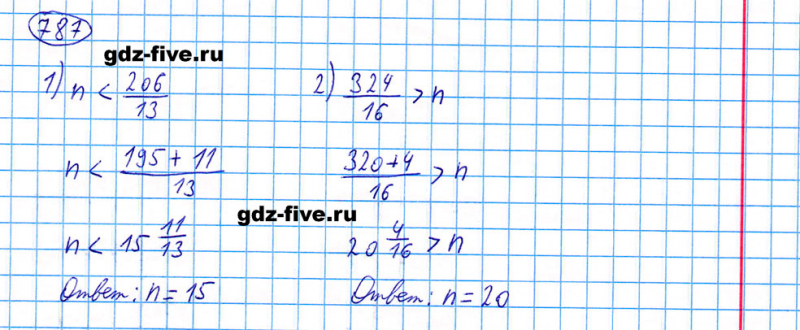 787
gdz-five.ru
1) n < 206/13
n < (195 + 11)/13
n < 15 11/13
Ответ: n = 15
2) 324/16 > n
(320+4)/16 > n
gdz-five.ru
20 4/16 > n
Ответ: n = 20